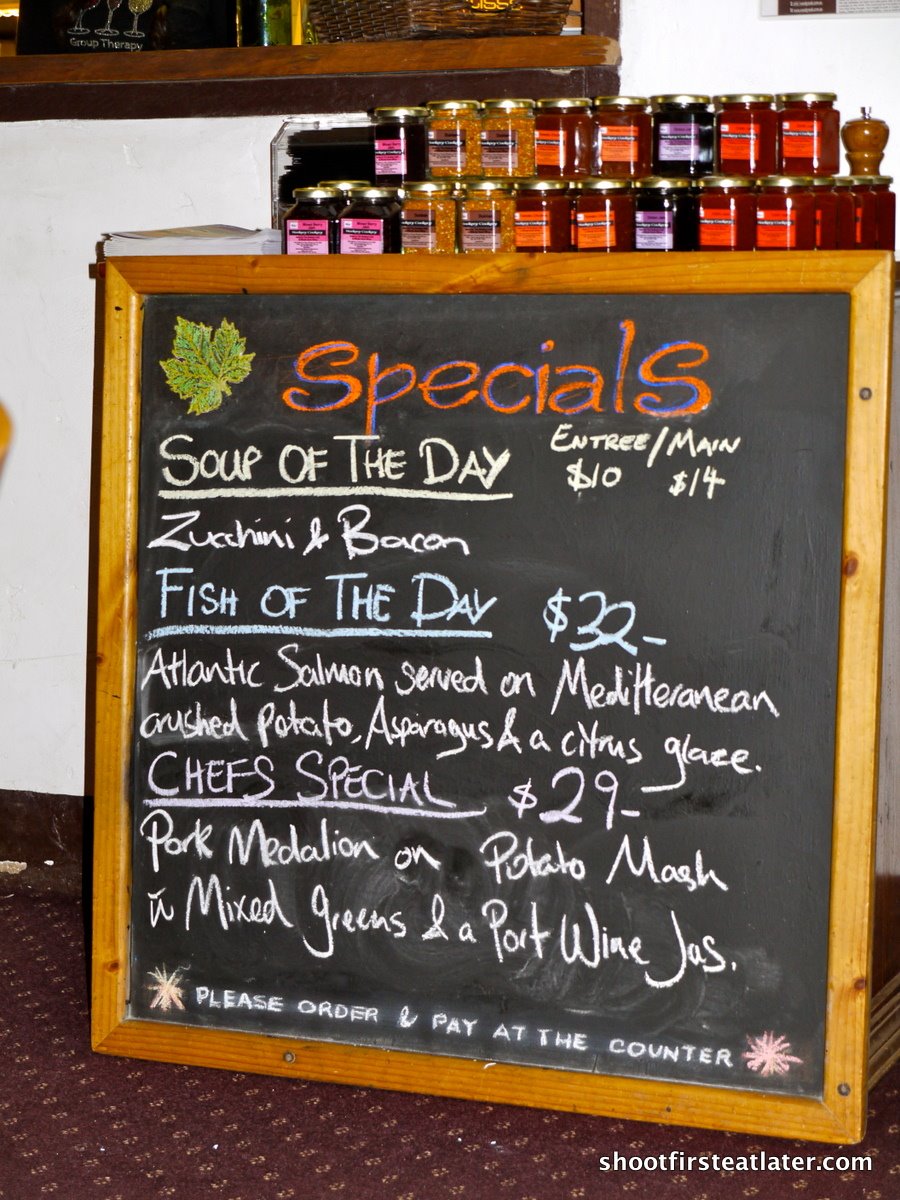 Group Therapy
Specials
SOUP OF THE DAY
ENTREE/MAIN
$10 $14
Zucchini & Bacon
FISH OF THE DAY $32-
Atlantic Salmon served on Meditteranean
crushed Potato, Asparagus & a citrus glaze.
CHEFS SPECIAL $29-
Pork Medalion on Potato Mash
w Mixed Greens & a Port Wine Jus.
PLEASE ORDER & PAY AT THE COUNTER
shootfirsteatlater.com